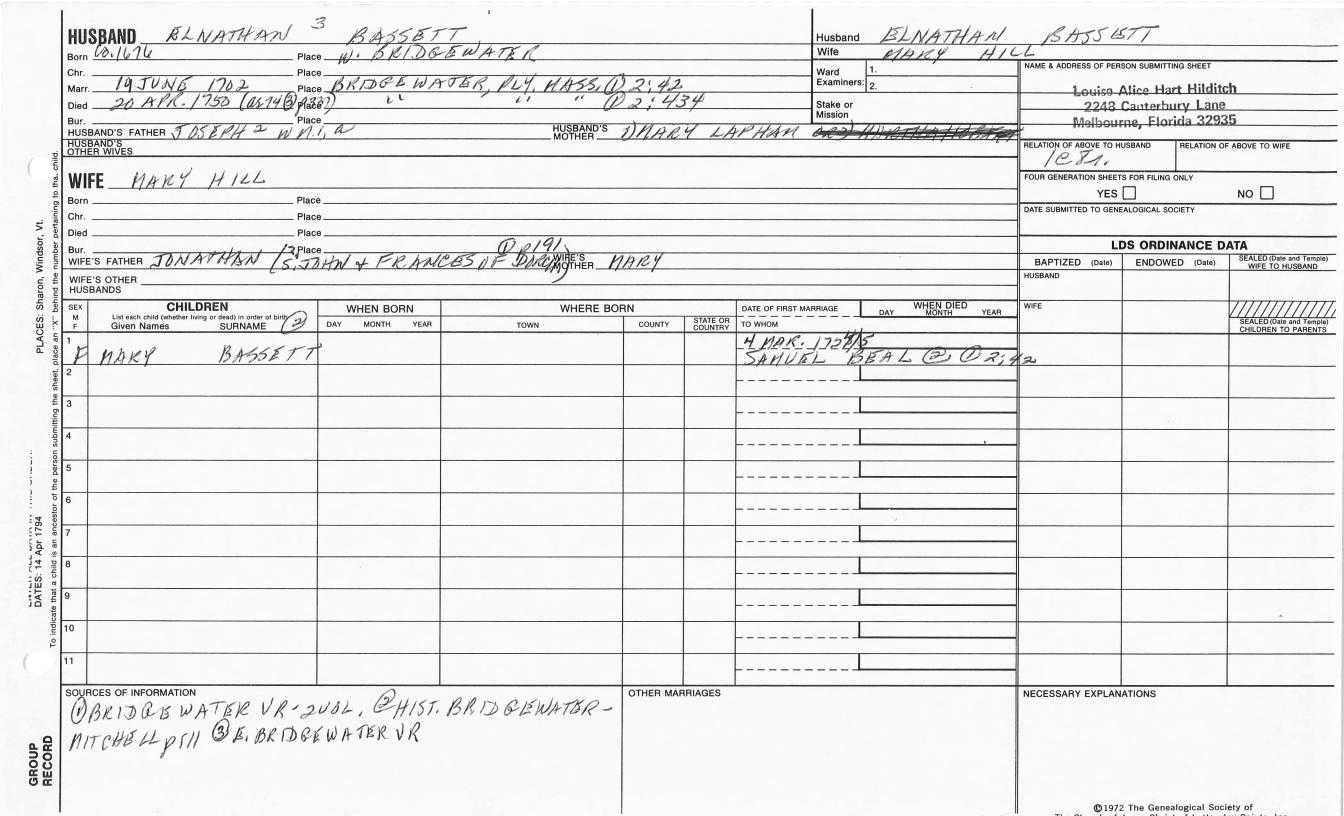 HUSBAND ELNATHAN 3 BASSETT
Born Co. 1676 Place W. BRIDGEWATER
Chr. Place
Marr. 19 JUNE 1702 Place BRIDGEWATER, PLY. MASS. ① 2:42
Died 20 APR. 1750 Place " " " ① 2:434
Bur.
HUSBAND'S FATHER JOSEPH 2 HUSBAND'S MOTHER 1) MARY LAPHAM
HUSBAND'S OTHER WIVES
Husband ELNATHAN BASSETT
Wife MARY HILL
Ward Examiners: 1.
2.
Stake or Mission
NAME & ADDRESS OF PERSON SUBMITTING SHEET
Louise Alice Hart Hilditch
2248 Canterbury Lane
Melbourne, Florida 32935
RELATION OF ABOVE TO HUSBAND RELATION OF ABOVE TO WIFE
FOUR GENERATION SHEETS FOR FILING ONLY
YES NO
DATE SUBMITTED TO GENEALOGICAL SOCIETY
WIFE MARY HILL
Born Place
Chr. Place
Died Place
Bur. Place ① p191
WIFE'S FATHER JONATHAN (S. JOHN & FRANCES OF DORCH) WIFE'S MOTHER MARY
WIFE'S OTHER HUSBANDS
LDS ORDINANCE DATA
BAPTIZED (Date) ENDOWED (Date) SEALED (Date and Temple) WIFE TO HUSBAND
HUSBAND
WIFE
SEALED (Date and Temple) CHILDREN TO PARENTS
SEX M F
CHILDREN
List each child (whether living or dead) in order of birth
Given Names SURNAME ②
WHEN BORN
DAY MONTH YEAR
WHERE BORN
TOWN COUNTY STATE OR COUNTRY
DATE OF FIRST MARRIAGE
TO WHOM
WHEN DIED
DAY MONTH YEAR
1 F MARY BASSETT
4 MAR.
SAMUEL BEAL ②, ① 2:42
2
3
4
5
6
7
8
9
10
11
SOURCES OF INFORMATION
① BRIDGEWATER VR - 2 VOL, ② HIST. BRIDGEWATER -
MITCHELL p511 ③ E. BRIDGEWATER VR
OTHER MARRIAGES
NECESSARY EXPLANATIONS
©1972 The Genealogical Society of
PLACES: Sharon, Windsor, Vt.
DATES: 14 Apr 1794
To indicate that a child is an ancestor of the person submitting the sheet, place an "X" behind the number pertaining to that child.
GROUP RECORD